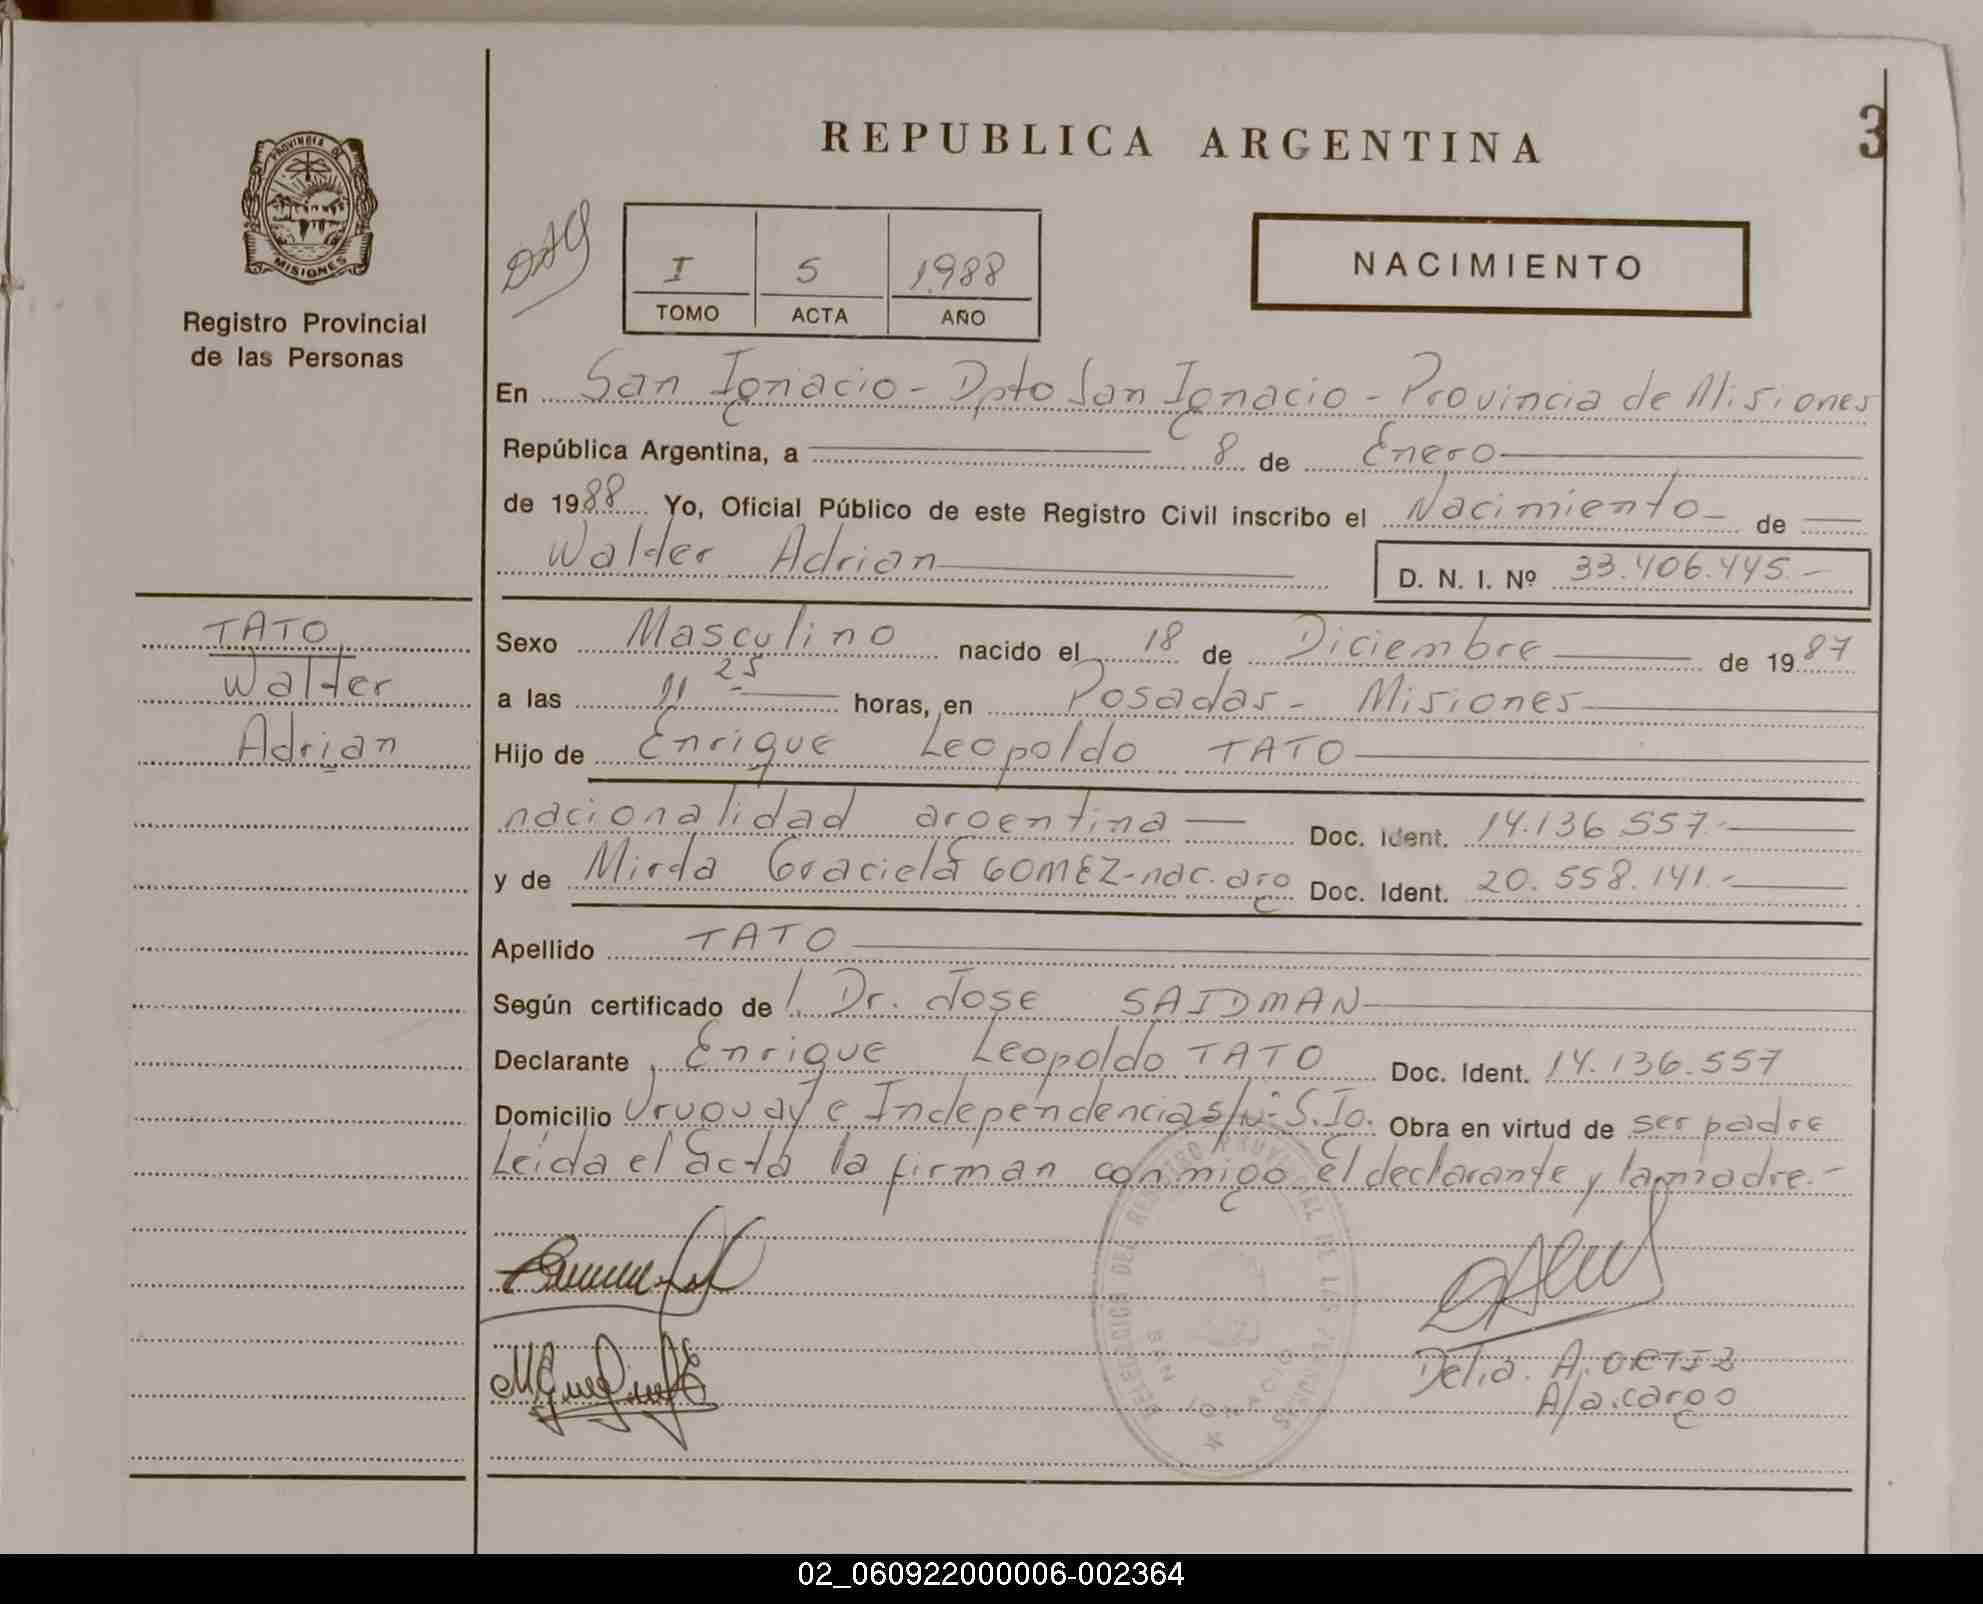 REPUBLICA ARGENTINA
3
PROVINCIA DE
MISIONES
Registro Provincial
de las Personas
I 5 1988
TOMO ACTA AÑO
NACIMIENTO
En San Ignacio - Dpto San Ignacio - Provincia de Misiones
República Argentina, a 8 de Enero
de 1988 Yo, Oficial Público de este Registro Civil inscribo el Nacimiento - de
Walter Adrian D. N. I. Nº 33.406.445.-
TATO
Walter
Adrian
Sexo Masculino nacido el 18 de Diciembre de 1987
a las 11 25 horas, en Posadas - Misiones
Hijo de Enrique Leopoldo TATO
nacionalidad argentina Doc. Ident. 14.136.557.-
y de Mirda Graciela GOMEZ - nac. arg Doc. Ident. 20.558.141.-
Apellido TATO
Según certificado de l Dr. Jose SAIDMAN
Declarante Enrique Leopoldo TATO Doc. Ident. 14.136.557
Domicilio Uruguay e Independencia s/nº S.Io. Obra en virtud de ser padre
Leída el acta la firman conmigo el declarante y la madre.-
DELEGACION DEL REGISTRO PROVINCIAL DE LAS PERSONAS
SAN IGNACIO
Delia A. ORTIZ
A/a.cargo
02_060922000006-002364